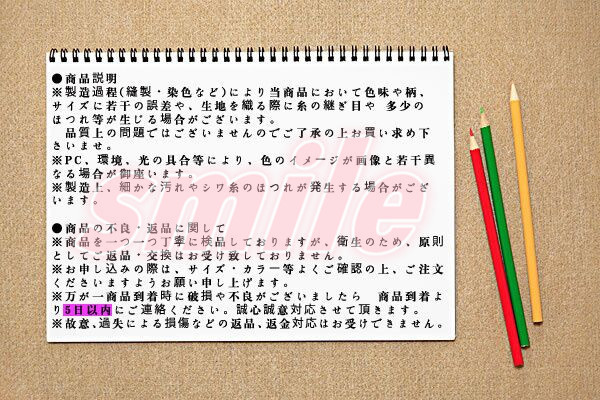 ●商品説明
※製造過程(縫製・染色など)により当商品において色味や柄、
サイズに若干の誤差や、生地を織る際に糸の継ぎ目や 多少の
ほつれ等が生じる場合がございます。
　品質上の問題ではございませんのでご了承の上お買い求め下
さいませ。
※PC、環境、光の具合等により、色のイメージが画像と若干異
なる場合が御座います。
※製造上、細かな汚れやシワ糸のほつれが発生する場合がござ
います。
●商品の不良・返品に関して
※商品を一つ一つ丁寧に検品しておりますが、衛生のため、原則
としてご返品・交換はお受け致しておりません。
※お申し込みの際は、サイズ・カラー等よくご確認の上、ご注文
くださいますようお願い申し上げます。
※万が一商品到着時に破損や不良がございましたら　商品到着よ
り5日以内にご連絡ください。誠心誠意対応させて頂きます。
※故意、過失による損傷などの返品、返金対応はお受けできません。
smile